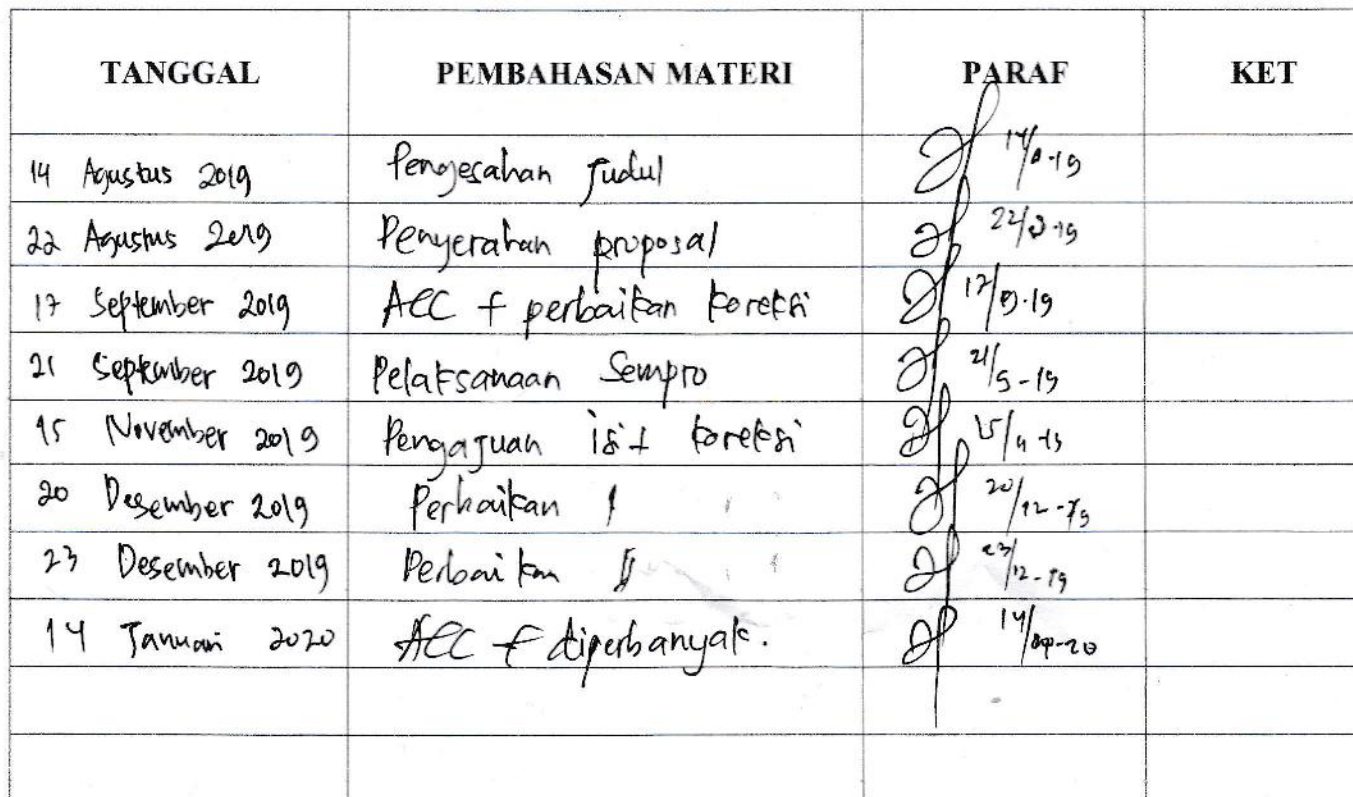 TANGGAL PEMBAHASAN MATERI PARAF KET
14 Agustus 2019 Pengesahan Judul 14/8-19
22 Agustus 2019 Penyerahan proposal 22/8-19
17 September 2019 ACC + perbaikan koreksi 17/9-19
21 September 2019 Pelaksanaan Sempro 21/9-19
15 November 2019 Pengajuan isi + koreksi 15/11-19
20 Desember 2019 Perbaikan I 20/12-19
23 Desember 2019 Perbaikan II 23/12-19
14 Januari 2020 ACC + diperbanyak. 14/